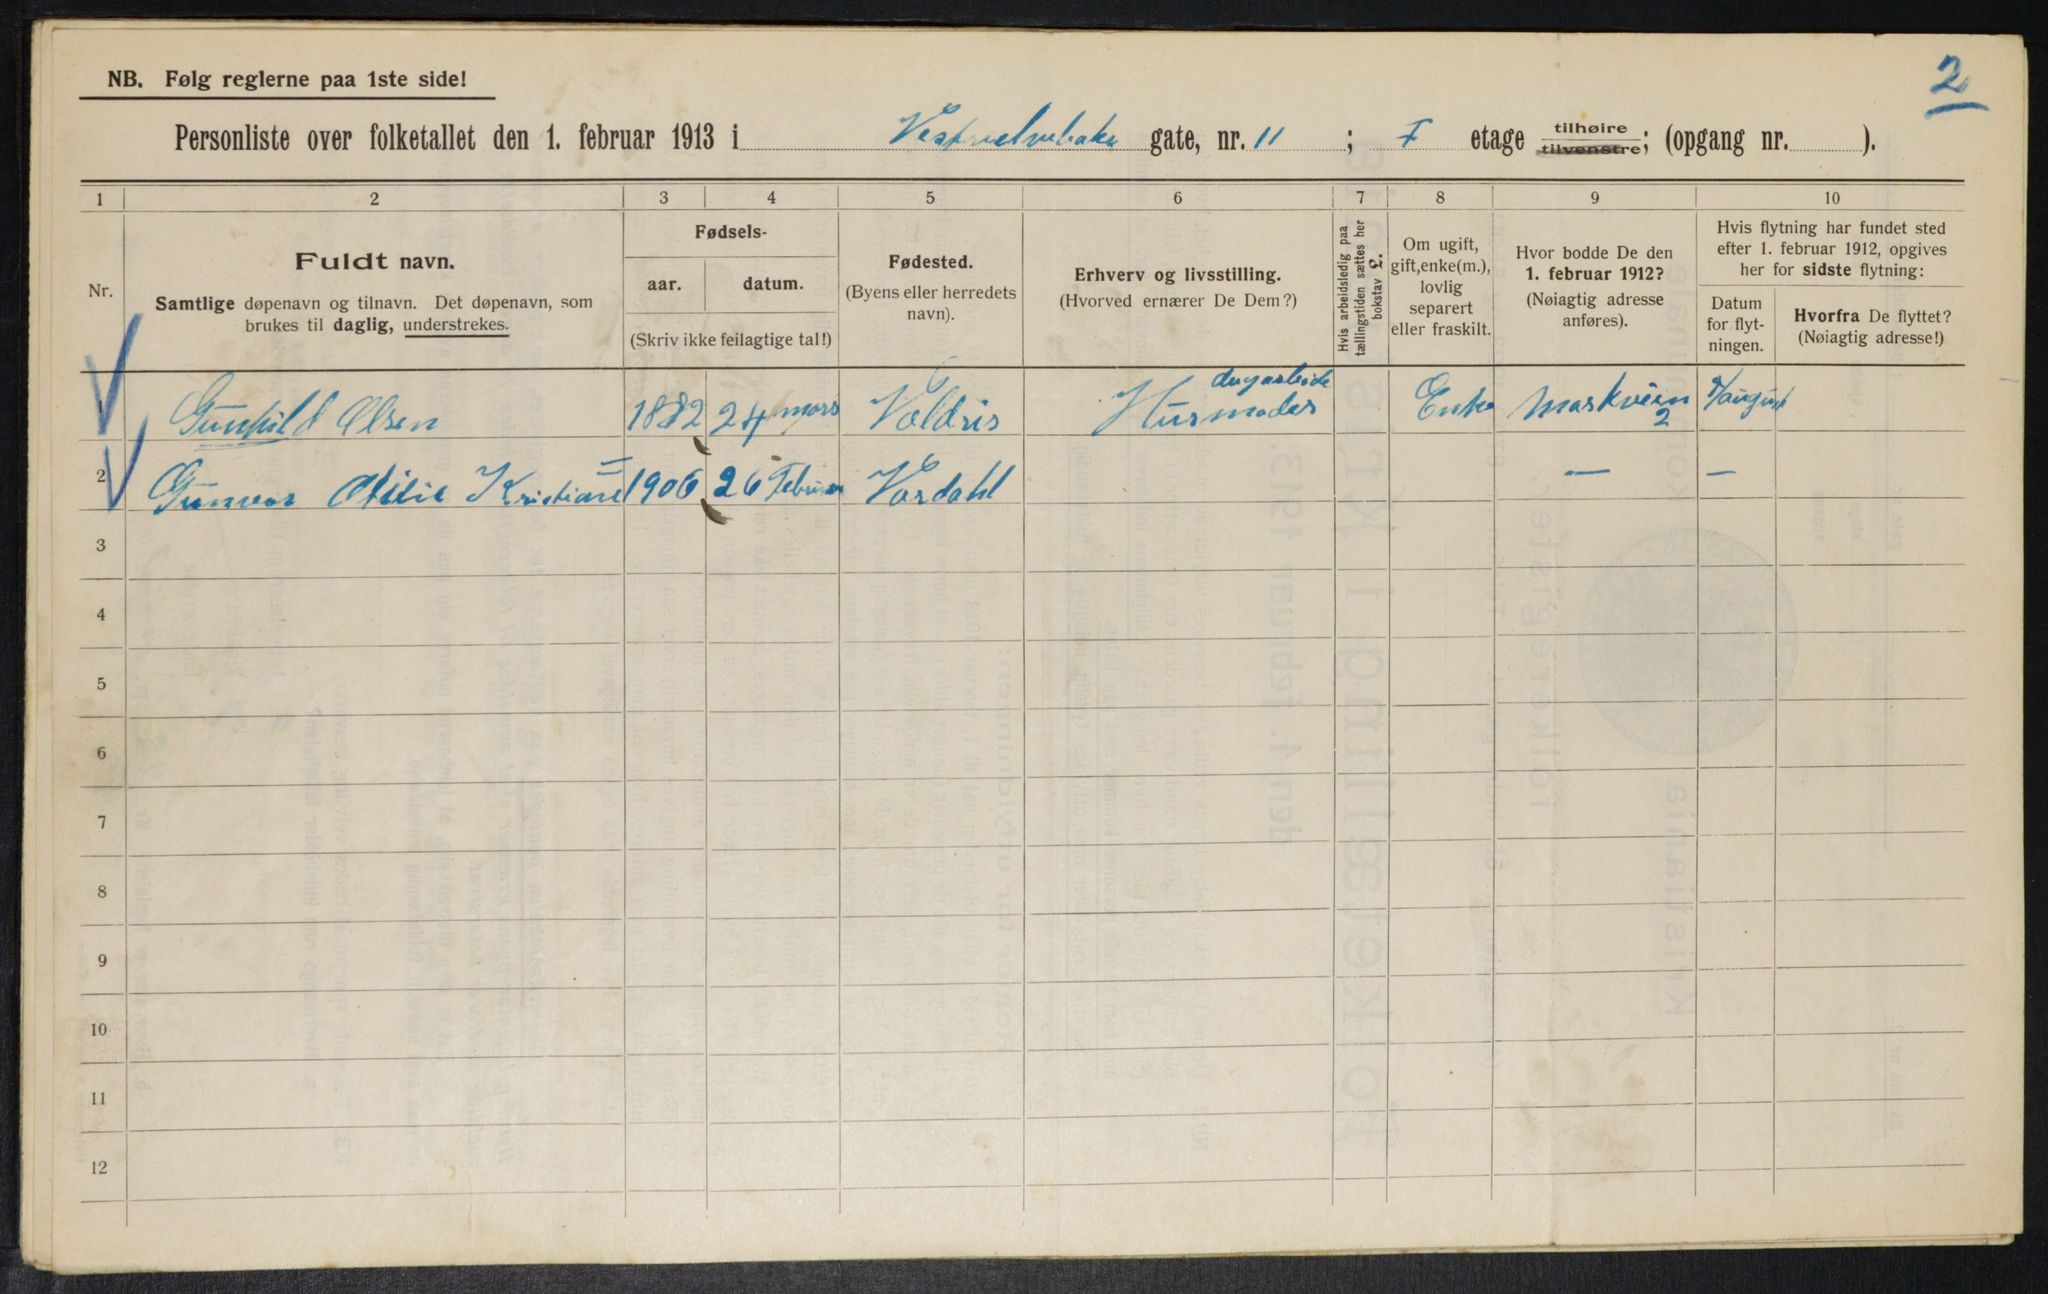 2
NB. Følg reglerne paa 1ste side!
Personliste over folketallet den 1. februar 1913 i Vestreelvebake gate, nr. 11 ; I etage tilhøire tilvenstre; (opgang nr. ).
1 2 3 4 5 6 7 8 9 10
Nr.
Fuldt navn.
Samtlige døpenavn og tilnavn. Det døpenavn, som
brukes til daglig, understrekes.
Fødsels-
aar. datum.
(Skriv ikke feilagtige tal!)
Fødested.
(Byens eller herredets
navn).
Erhverv og livsstilling.
(Hvorved ernærer De Dem?)
Hvis arbeidsledig paa
tællingstiden sættes her
bokstav L.
Om ugift,
gift, enke(m.),
lovlig
separert
eller fraskilt.
Hvor bodde De den
1. februar 1912?
(Nøiagtig adresse
anføres).
Hvis flytning har fundet sted
efter 1. februar 1912, opgives
her for sidste flytning:
Datum
for flyt-
ningen.
Hvorfra De flyttet?
(Nøiagtig adresse!)
dagarbeide
1 Gunhild Olsen 1882 24 mars Valdris Husmoder Enke Markveien 2 august
2 Gunvor Otilie Kristiane — 1906 26 Februar Vardahl — —
3
4
5
6
7
8
9
10
11
12